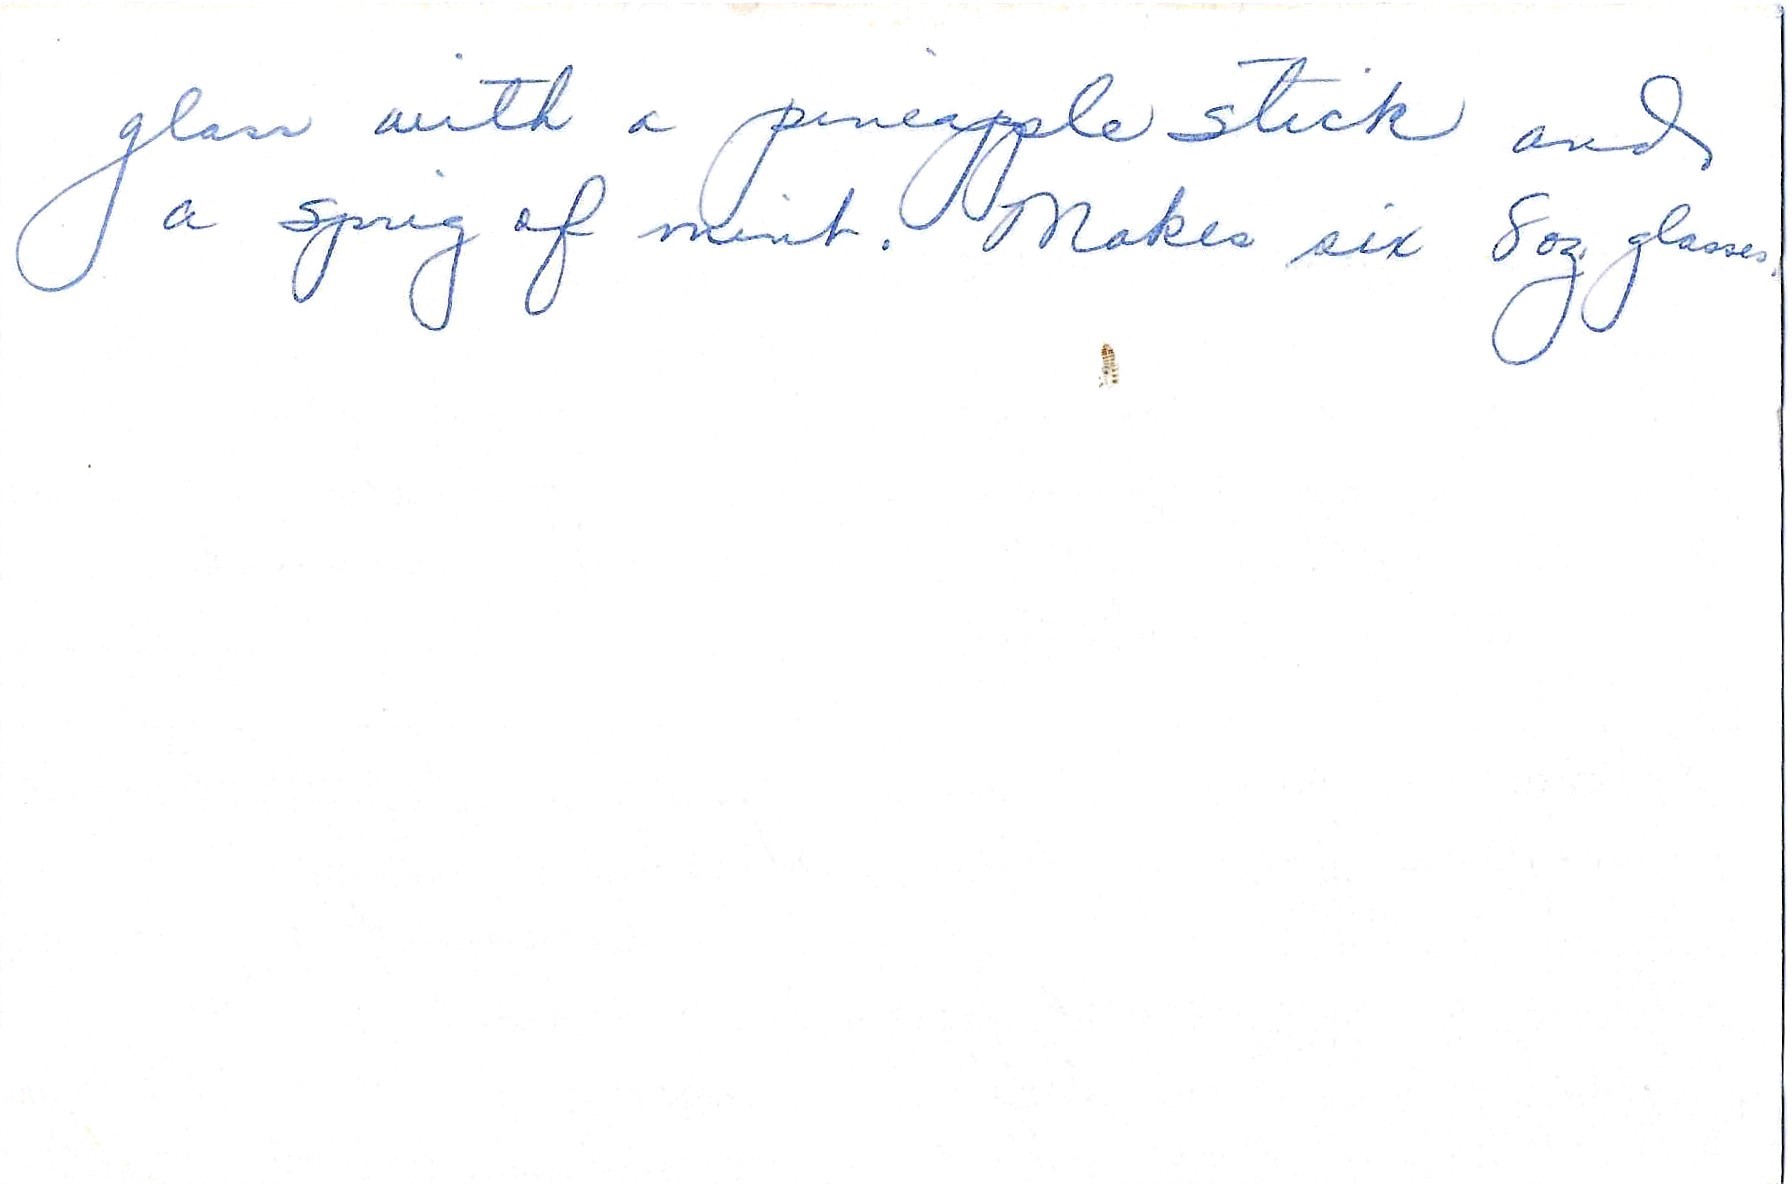 glass with a pineapple stick and
a sprig of mint. Makes six 8 oz. glasses.